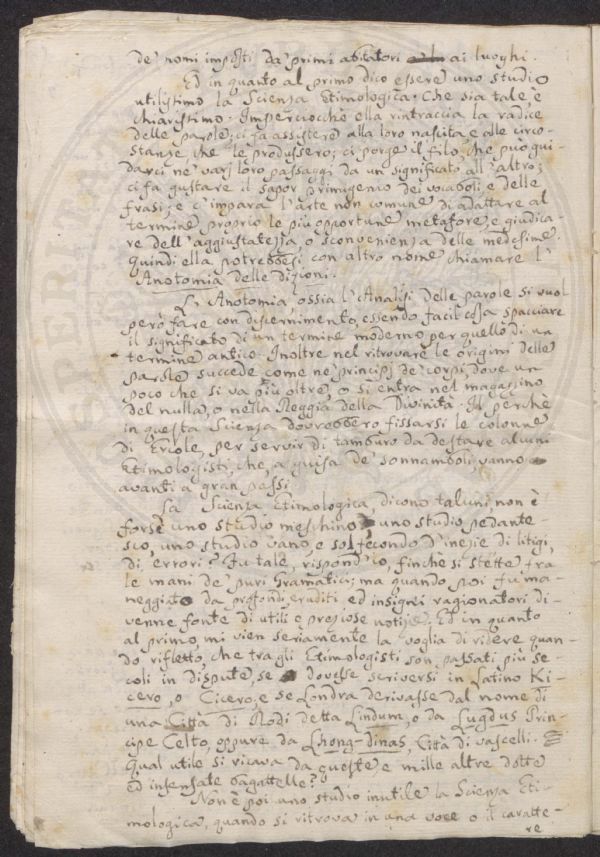 de' nomi imposti da' primi abitatori ai luoghi.
Ed in quanto al primo dico essere uno studio
utilissimo la Scienza Etimologica. Che sia tale, è
chiarissimo. Imperciocchè ella rintraccia la radice
delle parole; ci fa assistere alla loro nascita, e alle circo-
stanze che le produssero; ci porge il filo, che può gui-
darci ne' varj loro passaggi da un significato all'altro;
ci fa gustare il sapor primigenio dei vocaboli, e delle
frasi; e c'impara l'arte non comune di adattare al
termine proprio le più opportune metafore, e giudica-
re dell'aggiustatezza, o sconvenienza delle medesime.
Quindi ella potrebbesi con altro nome chiamare l'
Anotomia delle Dizioni.
L'Anotomia, ossia l'Analisi delle parole si vuol
però fare con discernimento, essendo facil cosa spacciare
il significato di un termine moderno per quello di un
termine antico. Inoltre nel ritrovare le origini delle
parole succede come ne' principj de' corpi, dove un
poco che si va più oltre, o si entra nel magazzino
del nulla, o nella Reggia della Divinità. Il perchè
in questa Scienza dovrebbero fissarsi le colonne
di Ercole, per servir di tamburo da destare alcuni
Etimologisti, che, a guisa de' sonnamboli, vanno
avanti a gran passi.
La Scienza Etimologica, dicono taluni, non è
forse uno studio meschino, uno studio pedante-
sco, uno studio vano, e sol fecondo d'inezie di litigi,
di errori? Fu tale, rispond'io, finchè si stette fra
le mani de' puri Gramatici; ma quando poi fu ma-
neggiato da profondi eruditi ed insigni ragionatori di-
venne fonte di utili e preziose notizie. Ed in quanto
al primo, mi vien seriamente la voglia di ridere quan-
do rifletto, che tra gli Etimologisti son passati più se-
coli in dispute, se dovesse scriversi in Latino Ki-
cero, o Cicero, e se Londra derivasse dal nome di
una Città di Rodi detta Lindum, o da Lugdus Prin-
cipe Celto, oppure da Lhong-dinas, Città di vascelli.
Qual utile si ricava da queste e mille altre dotte
ed insensate bagattelle?
Non è poi uno studio inutile la Scienza Eti-
mologica, quando si ritrova in una voce o il caratte-
re